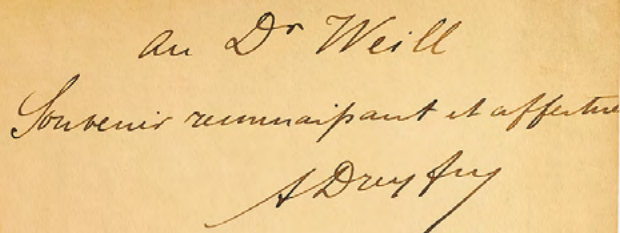 au Dr Weill
Souvenir reconnaissant et affectue
A Dreyfus